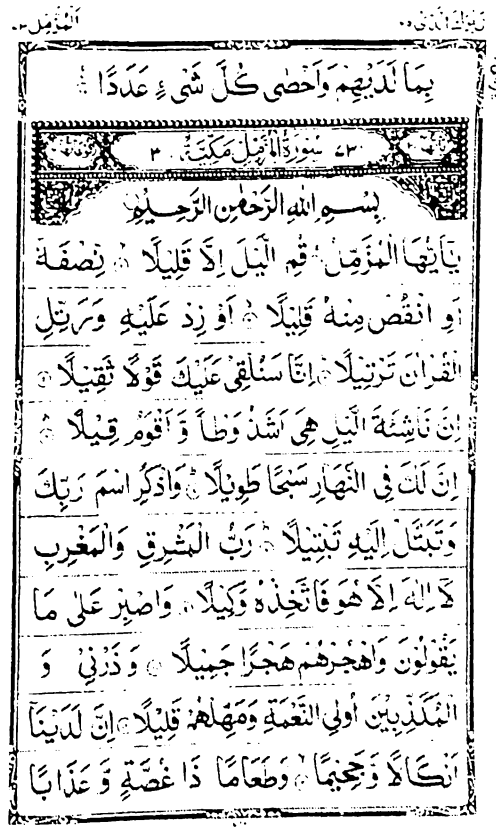 تبارك الذي ٢٩ المزمل ٧٣
بِمَا لَدَيْهِمْ وَاَحْصٰى كُلَّ شَىْءٍ عَدَدًا
٧٣ سُوْرَةُ الْمُزَّمِّلِ مَكِّيَّةٌ ٣
بِسْمِ اللهِ الرَّحْمٰنِ الرَّحِيْمِ
يٰۤاَيُّهَا الْمُزَّمِّلُ قُمِ الَّيْلَ اِلَّا قَلِيْلًا نِصْفَهٗ
اَوِ انْقُصْ مِنْهُ قَلِيْلًا اَوْ زِدْ عَلَيْهِ وَرَتِّلِ
الْقُرْاٰنَ تَرْتِيْلًا اِنَّا سَنُلْقِىْ عَلَيْكَ قَوْلًا ثَقِيْلًا
اِنَّ نَاشِئَةَ الَّيْلِ هِىَ اَشَدُّ وَطْاً وَّاَقْوَمُ قِيْلًا
اِنَّ لَكَ فِى النَّهَارِ سَبْحًا طَوِيْلًا وَاذْكُرِ اسْمَ رَبِّكَ
وَتَبَتَّلْ اِلَيْهِ تَبْتِيْلًا رَبُّ الْمَشْرِقِ وَالْمَغْرِبِ
لَاۤ اِلٰهَ اِلَّا هُوَ فَاتَّخِذْهُ وَكِيْلًا وَاصْبِرْ عَلٰى مَا
يَقُوْلُوْنَ وَاهْجُرْهُمْ هَجْرًا جَمِيْلًا وَذَرْنِىْ وَ
الْمُكَذِّبِيْنَ اُولِى النَّعْمَةِ وَمَهِّلْهُمْ قَلِيْلًا اِنَّ لَدَيْنَاۤ
اَنْكَالًا وَّجَحِيْمًا وَّطَعَامًا ذَا غُصَّةٍ وَّعَذَابًا